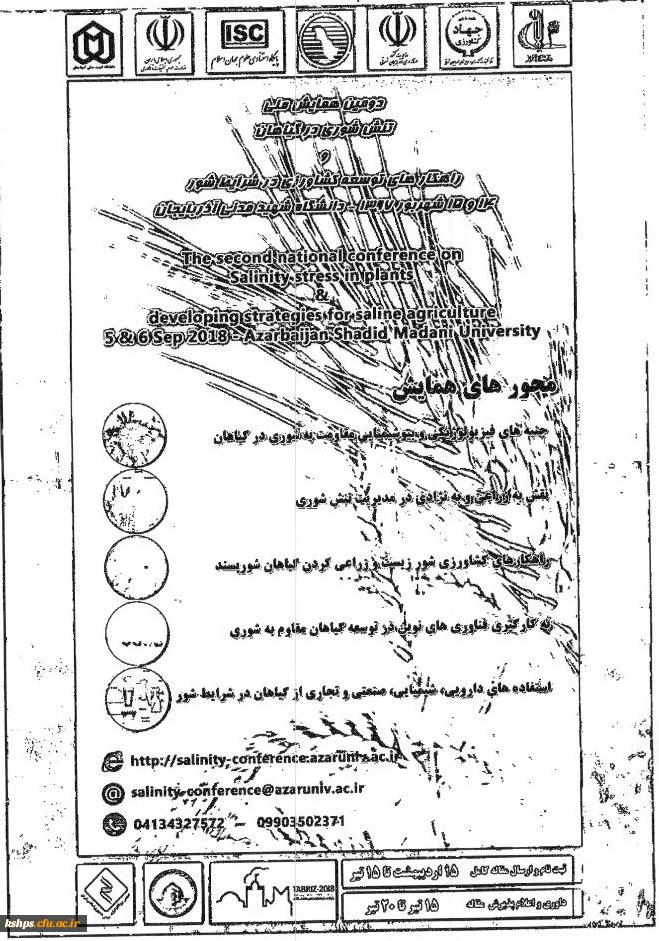 ISC
پایگاه استنادی علوم جهان اسلام
جهاد
کشاورزی
دومین همایش ملی
تنش شوری در گیاهان
و
راهکارهای توسعه کشاورزی در شرایط شور
۱۴ و ۱۵ شهریور ۱۳۹۷ - دانشگاه شهید مدنی آذربایجان
The second national conference on
Salinity stress in plants
&
developing strategies for saline agriculture
5 & 6 Sep 2018 - Azarbaijan Shadid Madani University
محور های همایش
جنبه های فیزیولوژیکی و بیوشیمیایی مقاومت به شوری در گیاهان
نقش به زراعی و به نژادی در مدیریت تنش شوری
راهکارهای کشاورزی شور زیست و زراعی کردن گیاهان شورپسند
به کارگیری فناوری های نوین در توسعه گیاهان مقاوم به شوری
استفاده های دارویی، شیمیایی، صنعتی و تجاری از گیاهان در شرایط شور
http://salinity-conference.azaruniv.ac.ir
salinity-conference@azaruniv.ac.ir
04134327572 – 09903502371
ثبت نام و ارسال مقاله کامل ۱۵ اردیبهشت تا ۱۵ تیر
داوری و اعلام پذیرش مقاله ۱۵ تیر تا ۲۰ تیر
TABRIZ-2018
kshps.cfu.ac.ir